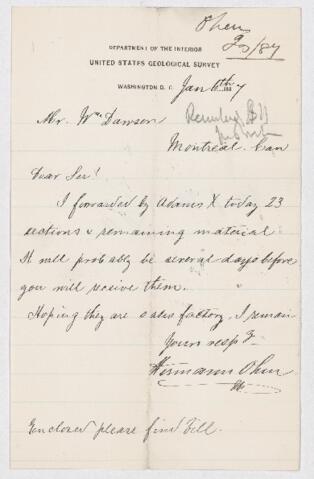 Ohern
DEPARTMENT OF THE INTERIOR
UNITED STATES GEOLOGICAL SURVEY
WASHINGTON D. C. Jan 188 7
Mr. Wm Dawson
Montreal. Can
Dear Sir!
I forwarded by Adams X today 23
sections & remaining material
It will probably be several days before
you will recive them.
Hoping they are sates factory I remain
Yours resp
Hermann
Enclosed please find Bill.